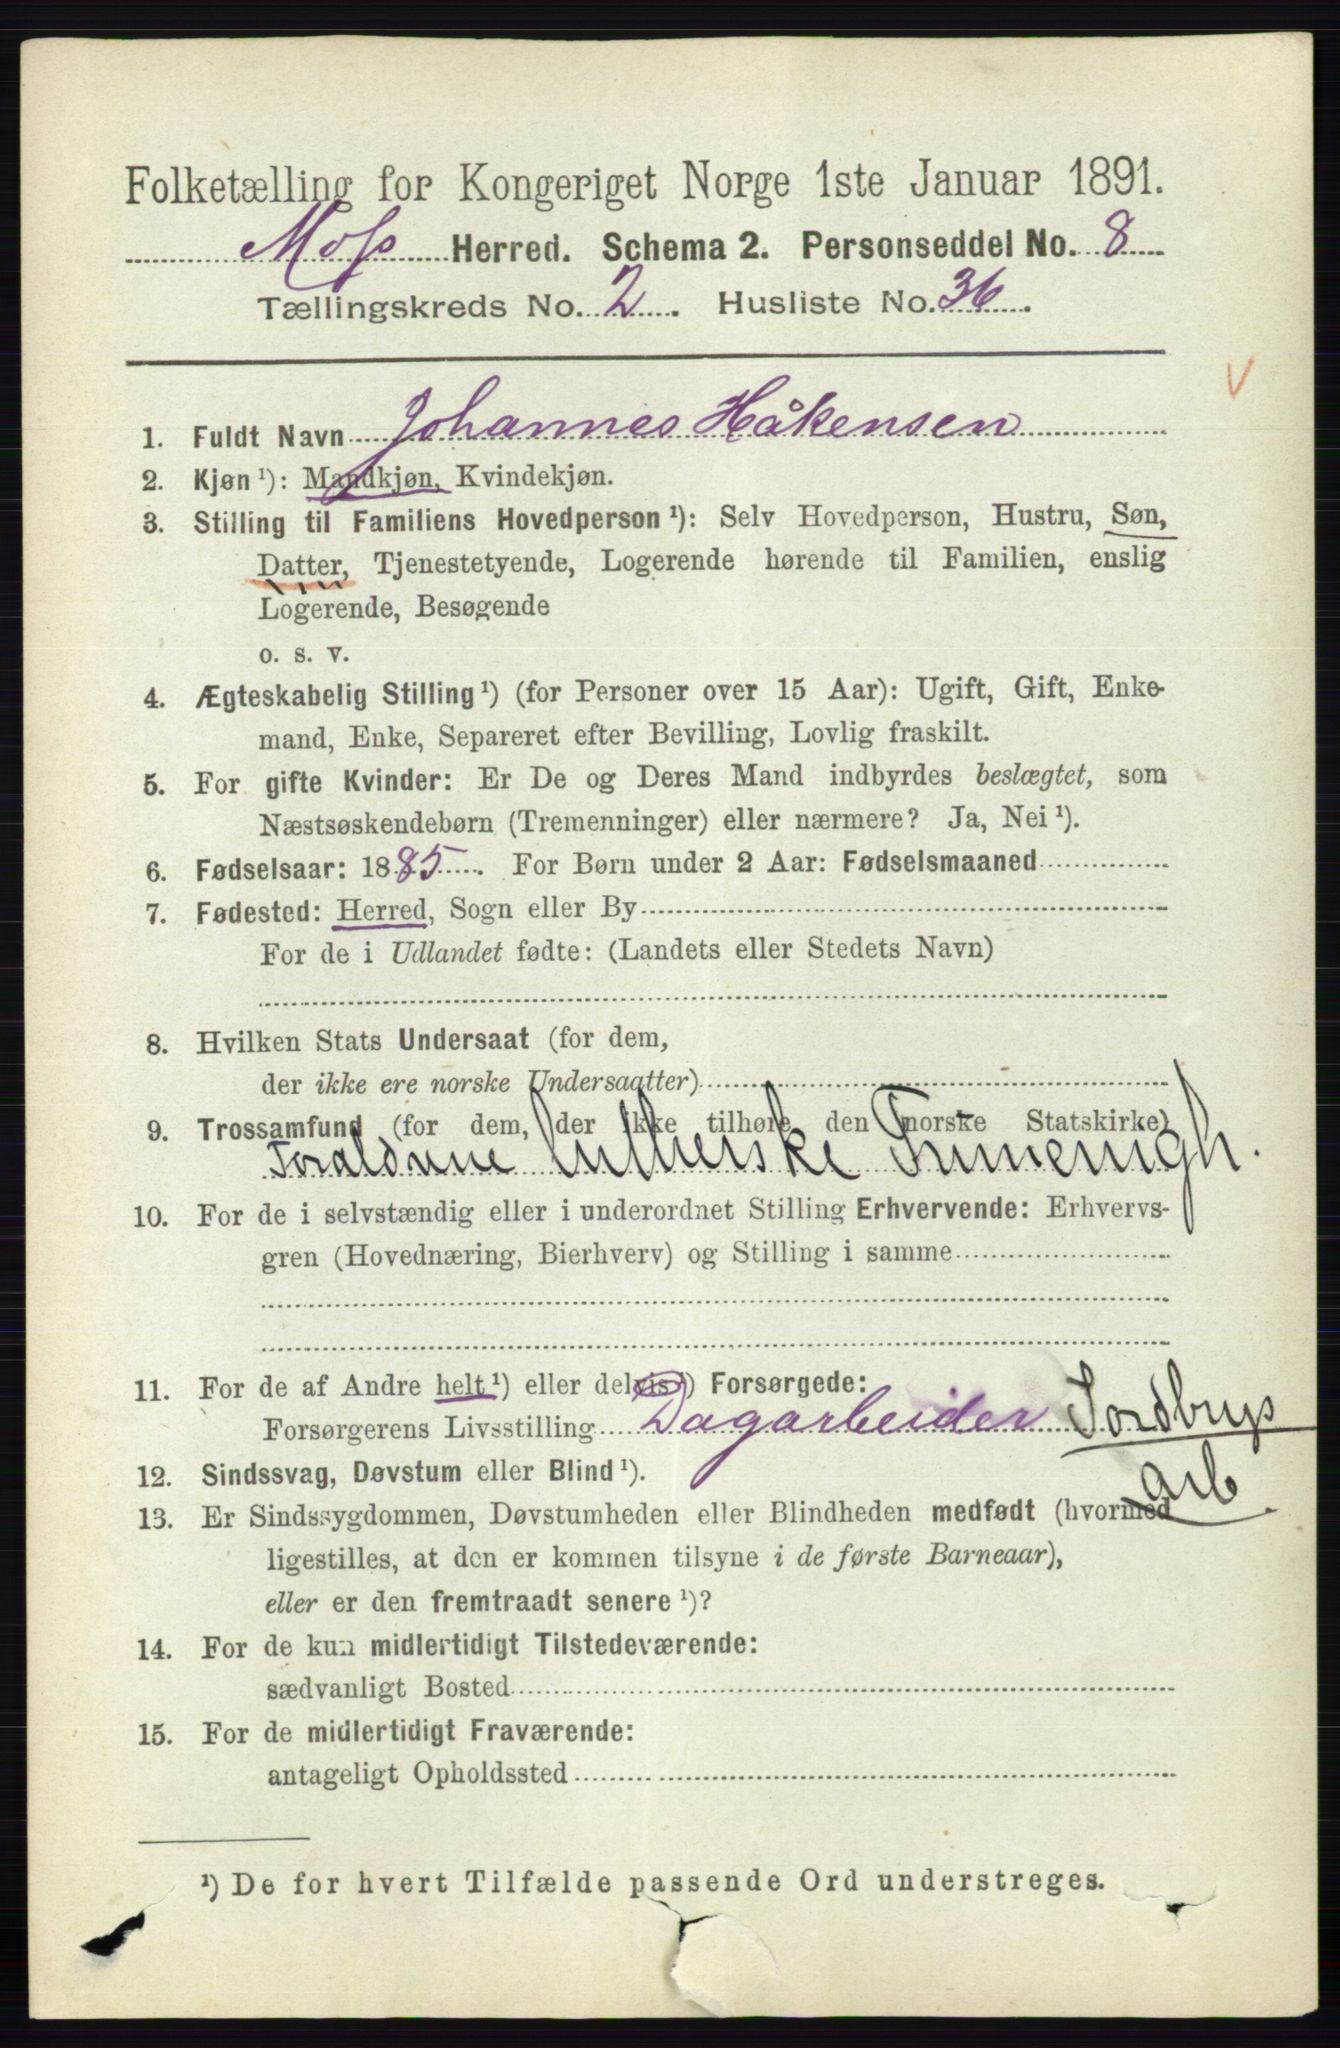 Folketælling for Kongeriget Norge 1ste Januar 1891.
Moss Herred. Schema 2. Personseddel No. 8
Tællingskreds No. 2. Husliste No. 36.
V
1. Fuldt Navn Johannes Håkensen
2. Kjøn ¹): Mandkjøn, Kvindekjøn.
3. Stilling til Familiens Hovedperson ¹): Selv Hovedperson, Hustru, Søn,
Datter, Tjenestetyende, Logerende hørende til Familien, enslig
Logerende, Besøgende
o. s. v.
4. Ægteskabelig Stilling ¹) (for Personer over 15 Aar): Ugift, Gift, Enke-
mand, Enke, Separeret efter Bevilling, Lovlig fraskilt.
5. For gifte Kvinder: Er De og Deres Mand indbyrdes beslægtet, som
Næstsøskendebørn (Tremenninger) eller nærmere? Ja, Nei ¹).
6. Fødselsaar: 1885. For Børn under 2 Aar: Fødselsmaaned
7. Fødested: Herred, Sogn eller By
For de i Udlandet fødte: (Landets eller Stedets Navn)
8. Hvilken Stats Undersaat (for dem,
der ikke ere norske Undersaatter)
9. Trossamfund (for dem, der ikke tilhøre den norske Statskirke)
Foraldrene lutherske Frimenigh.
10. For de i selvstændig eller i underordnet Stilling Erhvervende: Erhvervs-
gren (Hovednæring, Bierhverv) og Stilling i samme
11. For de af Andre helt ¹) eller delvis ¹) Forsørgede:
Forsørgerens Livsstilling Dagarbeider Jordbrugs
arb.
12. Sindssvag, Døvstum eller Blind ¹).
13. Er Sindssygdommen, Døvstumheden eller Blindheden medfødt (hvormed
ligestilles, at den er kommen tilsyne i de første Barneaar),
eller er den fremtraadt senere ¹)?
14. For de kun midlertidigt Tilstedeværende:
sædvanligt Bosted
15. For de midlertidigt Fraværende:
antageligt Opholdssted
¹) De for hvert Tilfælde passende Ord understreges.